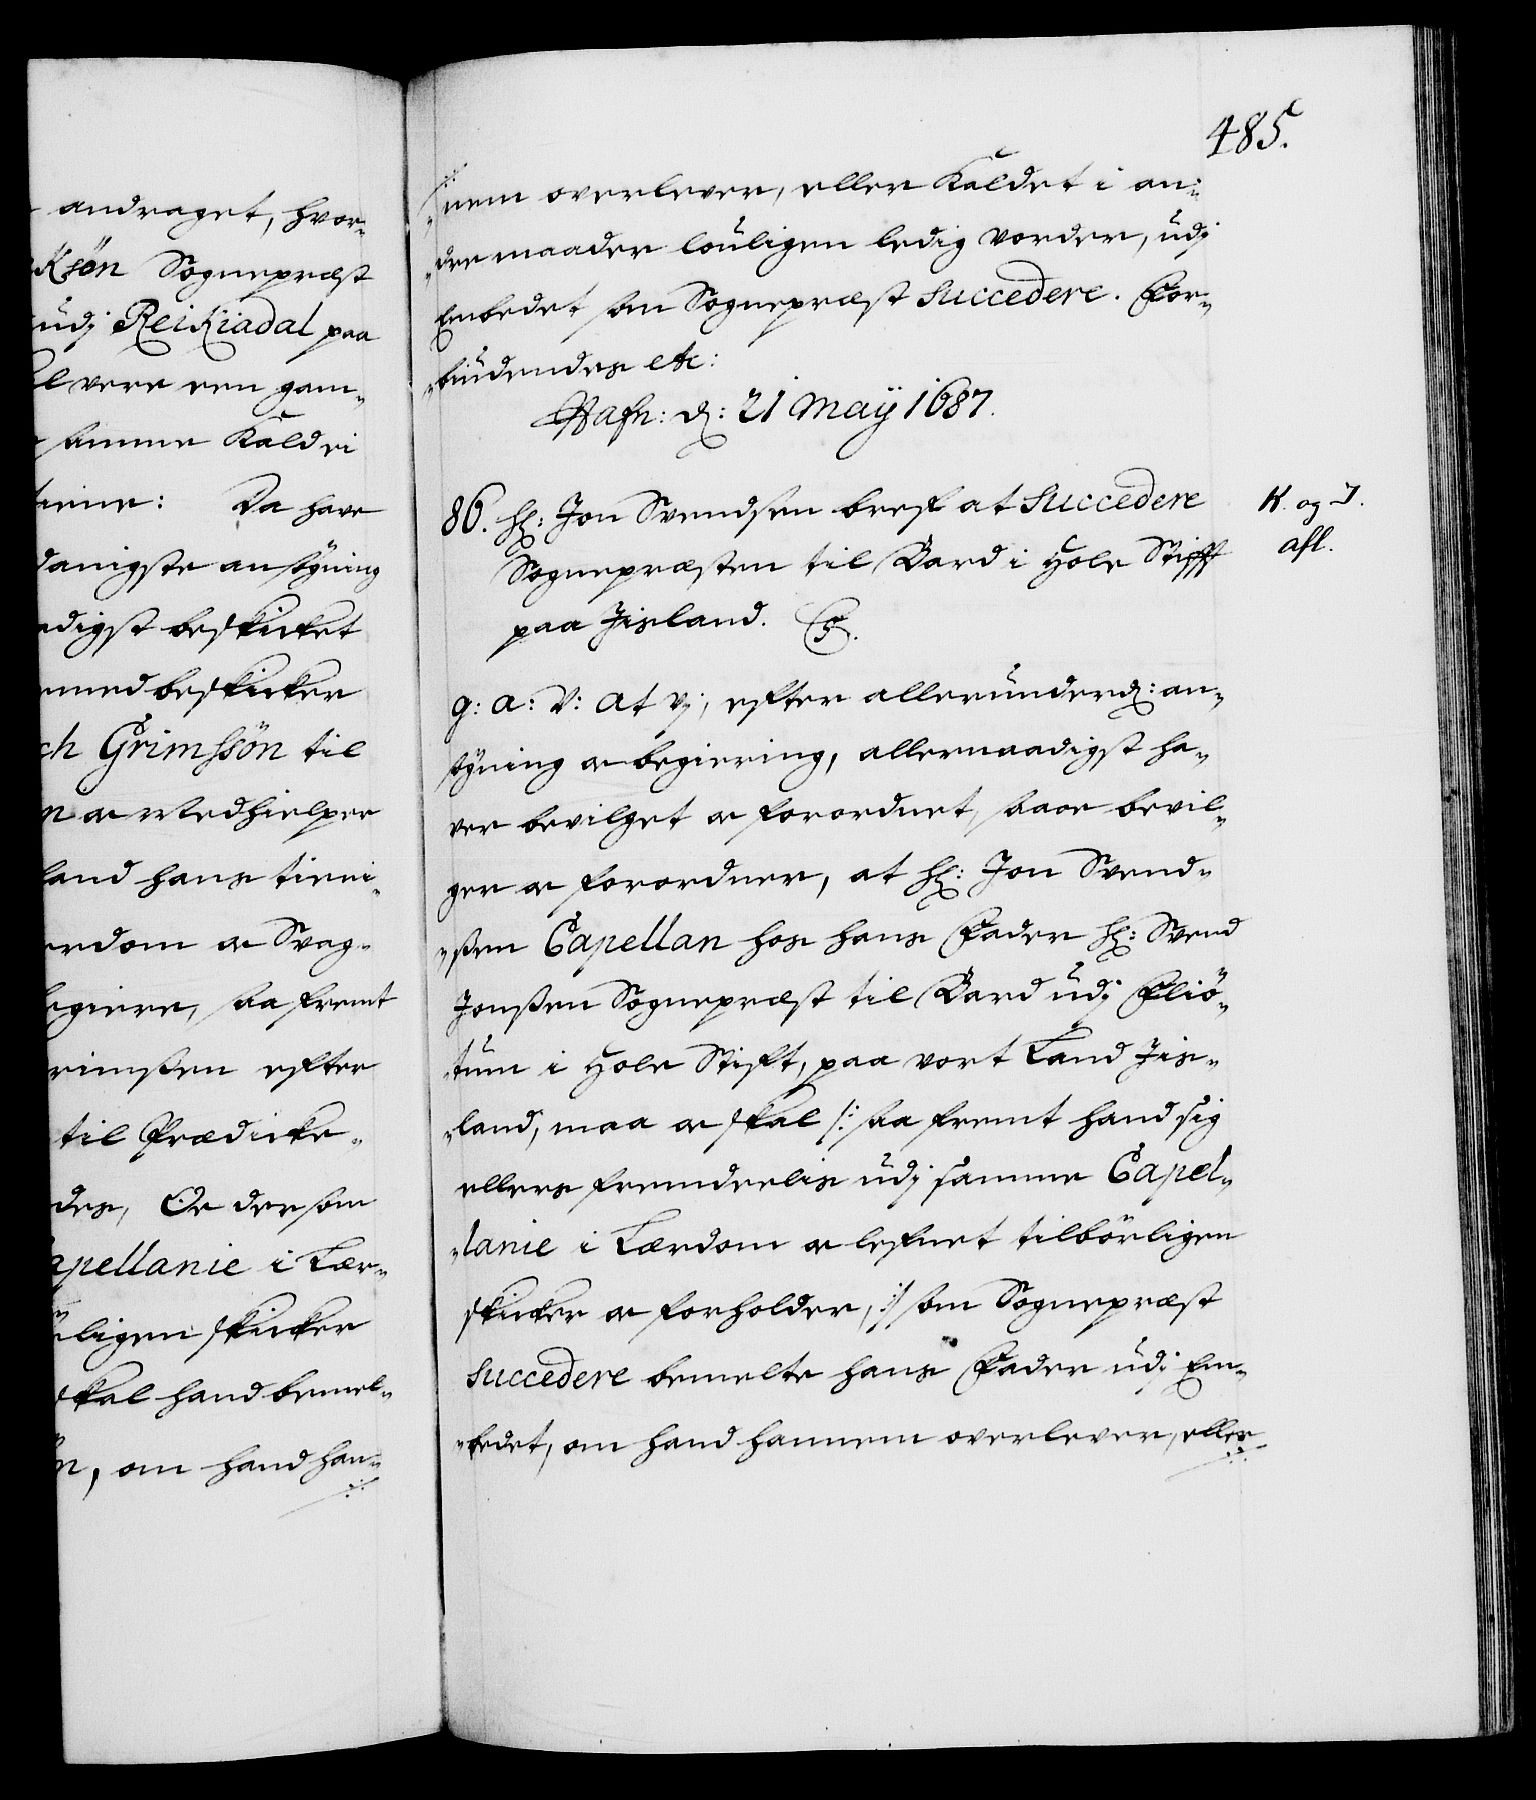 andraget, hvor-
Ksøn Sognepræst
udj ReiKiadal paa
vere een gam-
samme Kald ei
tiene: Da have
danigste ansøgning
adigst beskicket
med beskicker
ch Grimssøn til
n oc Medhielper
land hans tieni-
erdom oc Svag-
egiere, saa fremt
rimssen efter
til Prædicke-
des, Oc dersom
apellanie i Lær-
ligen skicker
skal hand bemel-
n, om hand han-
485.
nem overlever, eller Kaldet i an-
dre maader louligen ledig vorder, udj
Embedet som Sognepræst succedere. For-
biudendes etc:
Hafn: d: 21 Maÿ 1687.
86. Hr: Jon Svendsen bref at succedere
Sognepræsten til Bard i Hole Stifft
paa Jisland.
K. og I.
afl.
g: a: V: At vj, efter allerunderd: an-
søgning oc begiering, allernaadigst ha-
ver bevilget oc forordnet, saa oc bevil-
ger oc forordner, at Hr: Jon Svend-
ssen Capellan hos hans Fader Hr: Svend
Jonssen Sognepræst til Bard udj Fliö-
tum i Hole Stift, paa vort Land Jis-
land, maa oc skal /: saa fremt hand sig
ellers fremdeelis udj samme Capel-
lanie i Lærdom oc lefnet tilbörligen
skicker oc forholder, :/ som Sognepræst
succedere bemelte hans Fader udj Em-
bedet, om hand hannem overlever, eller